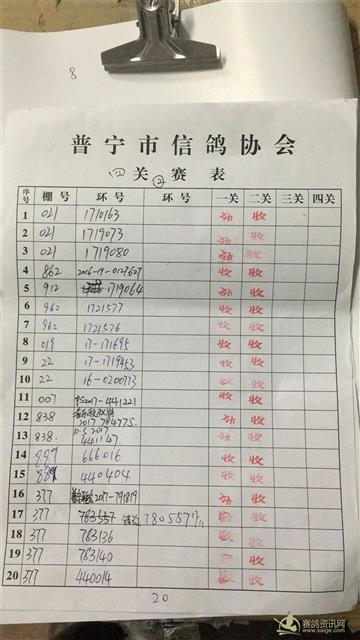 8
普宁市信鸽协会
四关②赛表
序号 棚号 环号 环号 一关 二关 三关 四关
1 021 1710163 收
2 021 1719073 收
3 021 1719080 收
4 862 2016-19-0127627 收 收
5 912 1719064 收
6 962 1721577 收 收
7 962 1721576 收 收
8 019 17-171695 收 收
9 22 17-1719453 收 收
10 22 16-0200773 收 收
11 007 2017-441221 收 收
12 838 2017 784775 收
13 838 2017 441147 收
14 666016 收 收
15 889 440404 收 收
16 377 2017-791819 收
17 377 780557 收
18 377 783136 收
19 377 783140 收
20 377 440014 收
20
赛鸽资讯网
www.saige.com